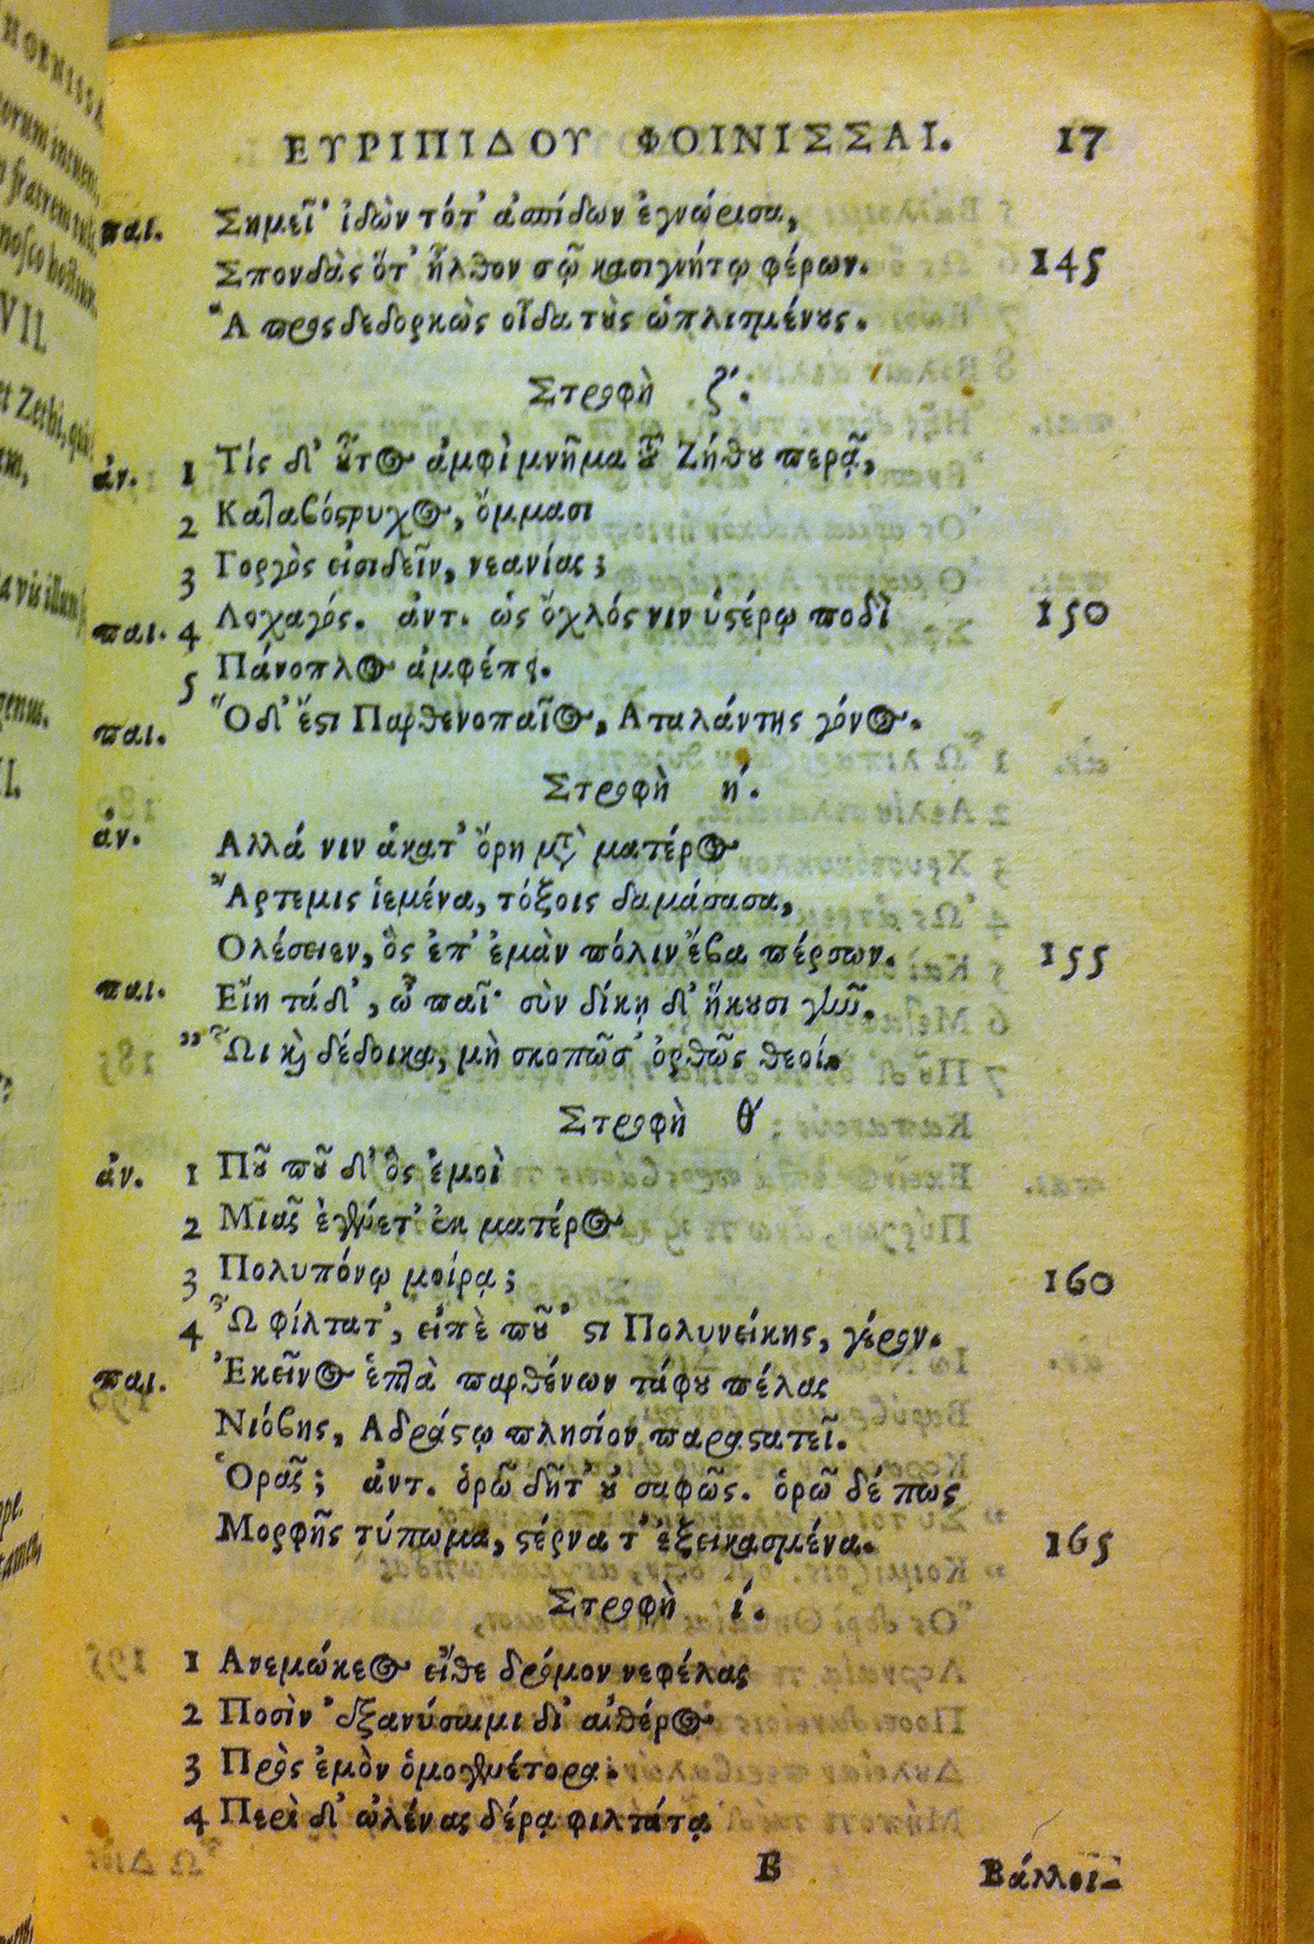 ΕΥΡΙΠΙΔΟΥ ΦΟΙΝΙΣΣΑΙ. 17
παι. Σημεῖ' ἰδὼν τότ' ἀσπίδων ἐγνώρισα,
Σπονδὰς ὅτ' ἦλθον σῷ κασιγνήτῳ φέρων. 145
Ἃ προςδεδορκὼς οἶδα τοὺς ὡπλισμένους.
Στροφὴ ζ'.
ἀν. 1 Τίς δ' οὗτος ἀμφὶ μνῆμα τοῦ Ζήθου περᾷ,
2 Καταβόστρυχος, ὄμμασι
3 Γοργὸς εἰσιδεῖν, νεανίας;
παι. 4 Λοχαγός. ἀντ. ὡς ὄχλός νιν ὑστέρῳ ποδὶ 150
5 Πάνοπλος ἀμφέπει.
παι. Ὅδ' ἔστι Παρθενοπαῖος, Αταλάντης γόνος.
Στροφὴ η'.
ἀν. Αλλά νιν ἁκατ' ὄρη μετὰ ματέρος
Ἄρτεμις ἱεμένα, τόξοις δαμάσασα,
Ολέσειεν, ὃς ἐπ' ἐμὰν πόλιν ἔβα πέρσων. 155
παι. Εἴη τάδ', ὦ παῖ· σὺν δίκῃ δ' ἥκουσι γῆν.
" Ὧι καὶ δέδοικα, μὴ σκοπῶσ' ὀρθῶς θεοί.
Στροφὴ θ'
ἀν. 1 Ποῦ ποῦ δ' ὃς ἐμοὶ
2 Μιᾶς ἐγένετ' ἐκ ματέρος
3 Πολυπόνῳ μοίρᾳ; 160
4 Ὦ φίλτατ', εἰπὲ ποῦ' στι Πολυνείκης, γέρον.
παι. Ἐκεῖνος ἑπτὰ παρθένων τάφου πέλας
Νιόβης, Αδράστῳ πλησίον παραστατεῖ.
Ὁρᾷς; ἀντ. ὁρῶ δῆτ' οὐ σαφῶς. ὁρῶ δέ πως
Μορφῆς τύπωμα, στέρνα τ' ἐξεικασμένα. 165
Στροφὴ ί.
1 Ανεμώκεος εἴθε δρόμον νεφέλας
2 Ποσὶν ἐξανύσαιμι δι' αἰθέρος
3 Πρὸς ἐμὸν ὁμογενέτορα·
4 Περὶ δ' ὠλένας δέρᾳ φιλτάτᾳ
B Βάλλοι-